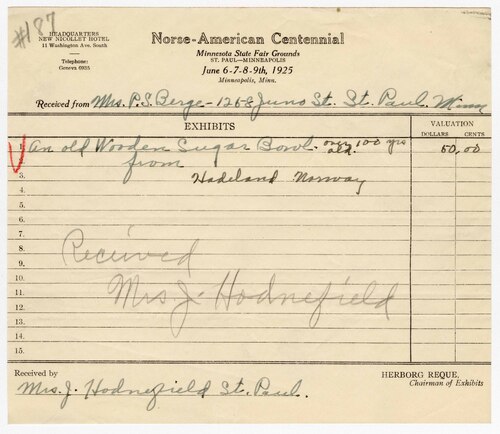 #187
HEADQUARTERS
NEW NICOLLET HOTEL
11 Washington Ave. South
Telephone:
Geneva 6935
Norse-American Centennial
Minnesota State Fair Grounds
ST. PAUL—MINNEAPOLIS
June 6-7-8-9th, 1925
Minneapolis, Minn.
Received from Mrs. P.S. Berge - 1258 Juno St. St. Paul. Minn
EXHIBITS
VALUATION
DOLLARS CENTS
1. An old Wooden Sugar Bowl. over 100 yrs old. 50,00
from
3. Hadeland Norway
4.
5.
6.
7.
8. Received
9.
10.
11. Mrs J. Hodnefield
12.
13.
14.
15.
Received by
HERBORG REQUE,
Chairman of Exhibits
Mrs. J. Hodnefield St. Paul.